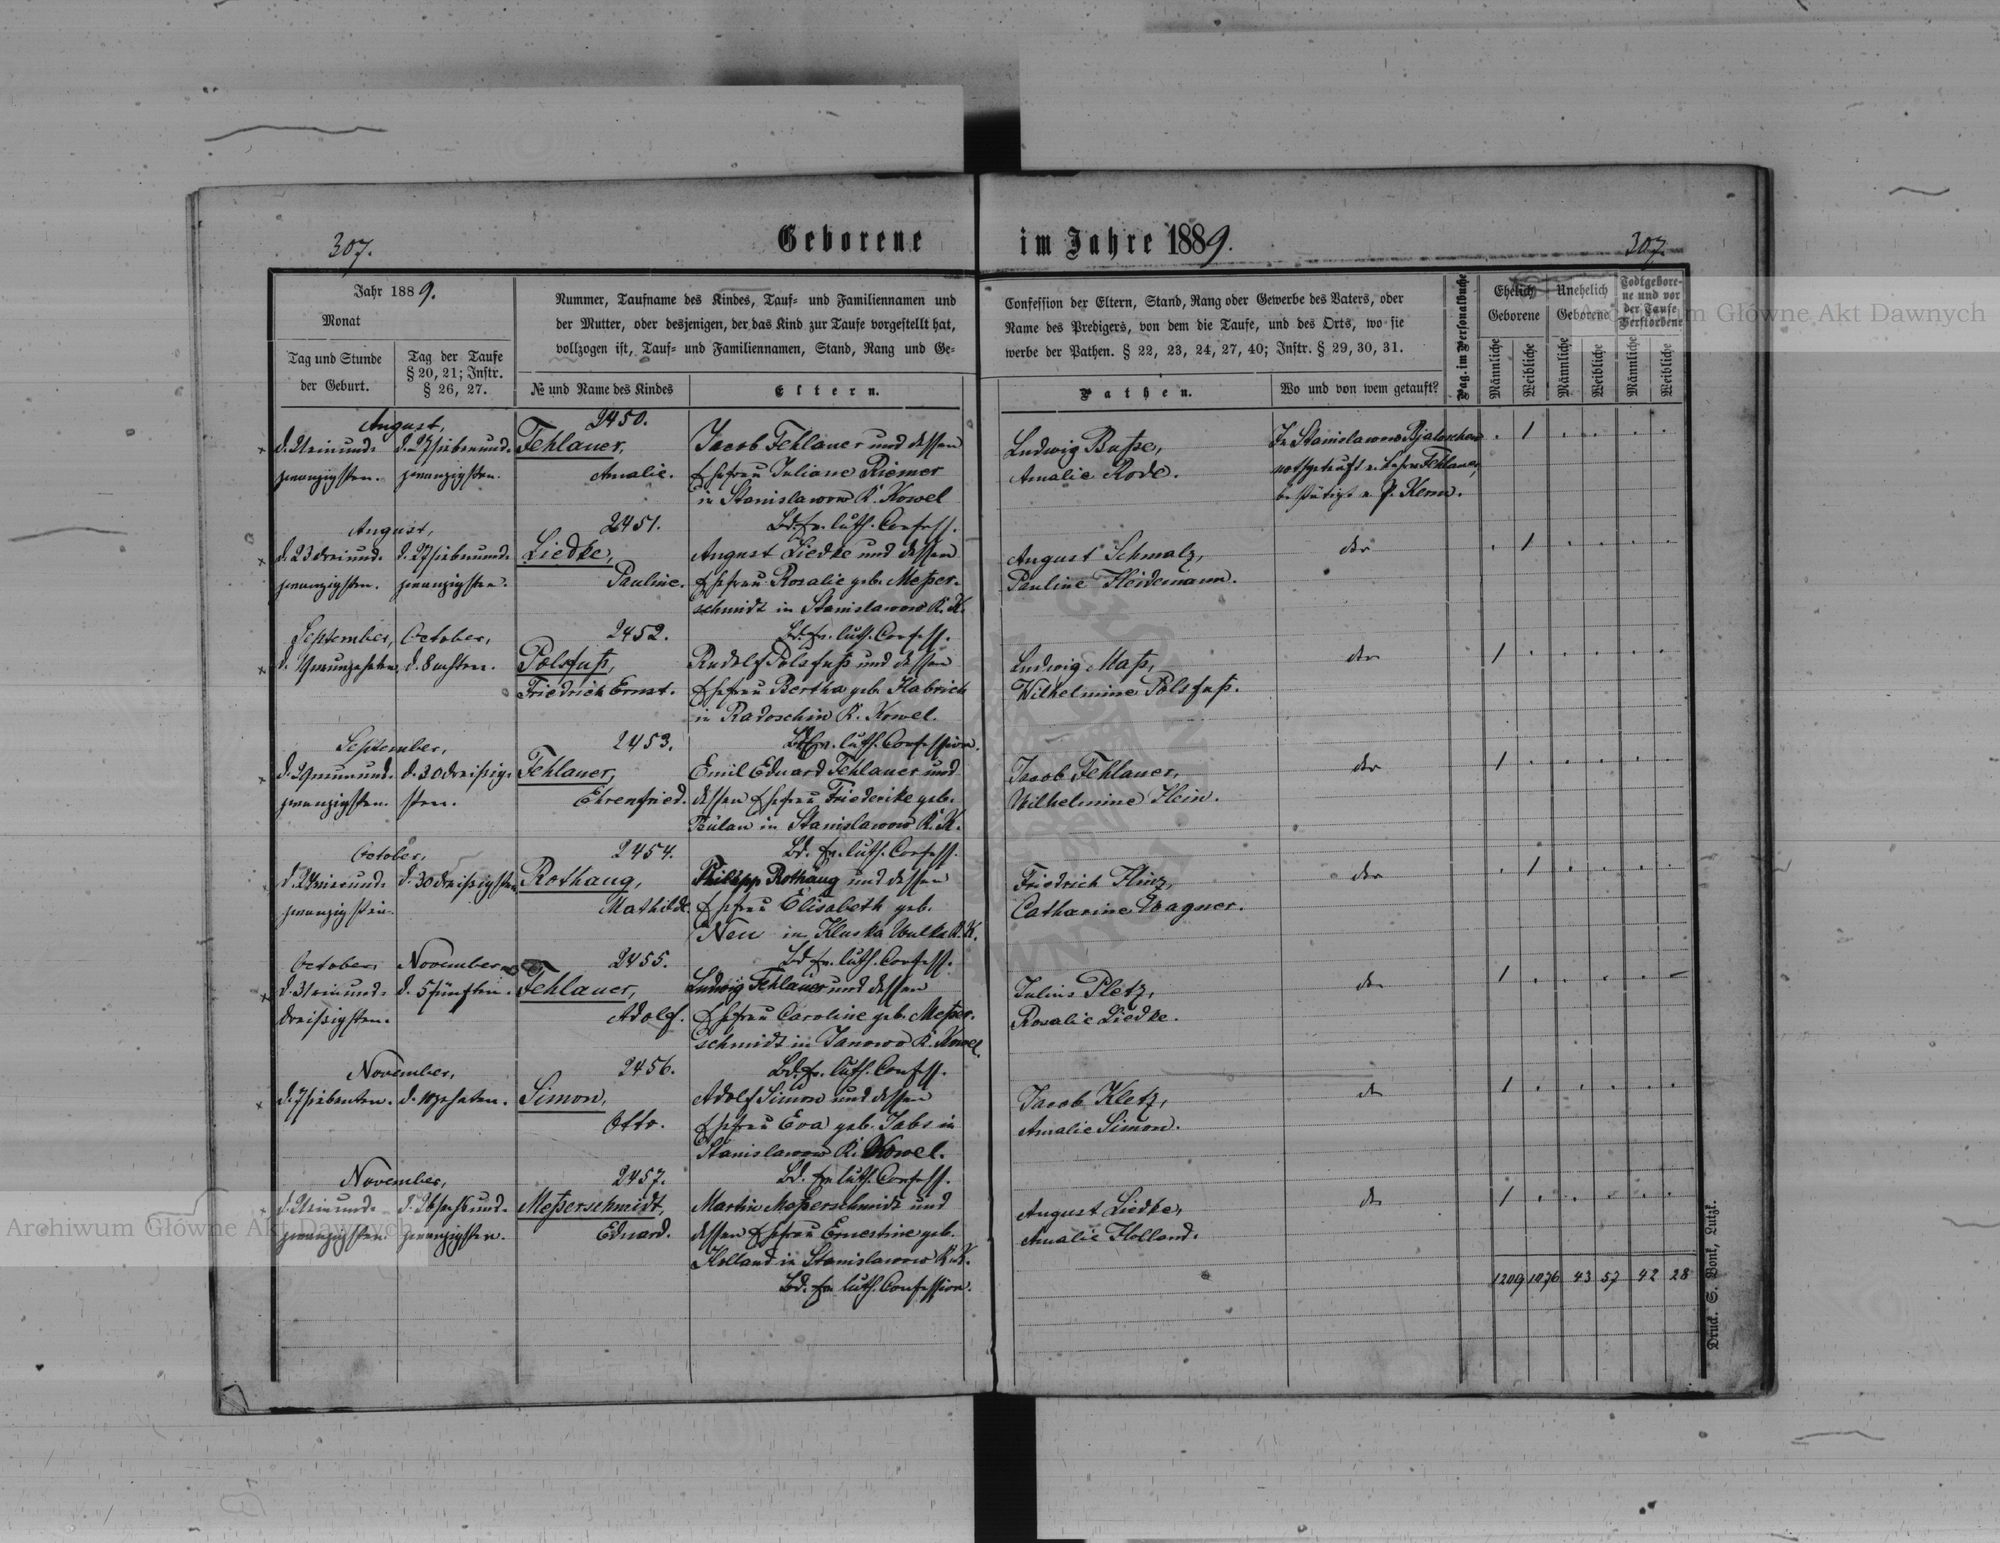 307.
Geborene im Jahre 1889.
307.
Jahr 1889.
Monat
Tag und Stunde
der Geburt.
Tag der Taufe
§ 20, 21; Instr.
§ 26, 27.
Nummer, Taufname des Kindes, Tauf- und Familiennamen und
der Mutter, oder desjenigen, der das Kind zur Taufe vorgestellt hat,
vollzogen ist, Tauf- und Familiennamen, Stand, Rang und Ge-
№ und Name des Kindes
Eltern.
Confession der Eltern, Stand, Rang oder Gewerbe des Vaters, oder
Name des Predigers, von dem die Taufe, und des Orts, wo sie
werbe der Pathen. § 22, 23, 24, 27, 40; Instr. § 29, 30, 31.
Pathen.
Wo und von wem getauft?
Pag. im Personalbuche
Ehelich
Geborene
Unehelich
Geborene
Todtgebore-
ne und vor
der Taufe
Verstorbene
Männliche
Weibliche
Männliche
Weibliche
Männliche
Weibliche
August,
d. 21 einund-
zwanzigsten.
d. 27 siebenund-
zwanzigsten.
2450.
Fehlauer,
Amalie.
Jacob Fehlauer und dessen
Ehefrau Juliane Riemer
in Stanislawow K. Kowel
Bd. ev. luth. Confess.
Ludwig Busse,
Amalie Rode.
In Stanislawow
nothgetauft v. Fehlauer,
bestätigt v. P. Kern.
1
August,
d. 23 dreiund-
zwanzigsten.
d. 27 siebenund-
zwanzigsten.
2451.
Liedke,
Pauline.
August Liedke und dessen
Ehefrau Rosalie geb. Meßer-
schmidt in Stanislawow K. K.
Bd. ev. luth. Confess.
August Schmalz,
Pauline Heidemann.
der
1
September,
d. 19 neunzehnten
October,
d. 8 achten.
2452.
Polsfuß,
Friedrich Ernst.
Rudolf Polsfuß und dessen
Ehefrau Bertha geb. Habrich
in Radoschin K. Kowel.
Bd. ev. luth. Confession.
Ludwig Maß,
Wilhelmine Polsfuß.
der
1
September,
d. 29 neunund-
zwanzigsten.
d. 30 dreißig-
sten.
2453.
Fehlauer,
Ehrenfried.
Emil Eduard Fehlauer und
dessen Ehefrau Friederike geb.
Bülau in Stanislawow K. K.
Bd. ev. luth. Confess.
Jacob Fehlauer,
Wilhelmine Hein.
der
1
October,
zwanzigsten.
d. 30 dreißigsten
2454.
Rothaug,
Mathilde.
Philipp Rothaug und dessen
Ehefrau Elisabeth geb.
Neu in Kluska Wulka K. K.
Bd. ev. luth. Confess.
Friedrich Hinz,
Catharine Wagner.
der
1
October,
d. 31 einund-
dreißigsten.
November
d. 5 fünften.
2455.
Fehlauer,
Adolf.
Ludwig Fehlauer und dessen
Ehefrau Caroline geb. Meßer-
schmidt in Janowo K. Kowel.
Bd. ev. luth. Confess.
Julius Pletz,
Rosalie Liedke.
der
1
November,
d. 7 siebenten.
d. 10 zehnten.
2456.
Simon,
Otto.
Adolf Simon und dessen
Ehefrau Eva geb. Jabs in
Stanislawow K. Kowel.
Bd. ev. luth. Confess.
Jacob Kletz,
Amalie Simon.
der
1
November,
d. 21 einund-
zwanzigsten.
d. 26 sechsund-
zwanzigsten.
2457.
Meßerschmidt,
Eduard.
Martin Meßerschmidt und
dessen Ehefrau Ernestine geb.
Holland in Stanislawow K. K.
Bd. ev. luth. Confession.
August Liedke,
Amalie Holland.
der
1
1209 1076 43 57 42 28
Druck. S. Bonk, Lutzk.
Archiwum Główne Akt Dawnych
Archiwum Główne Akt Dawnych